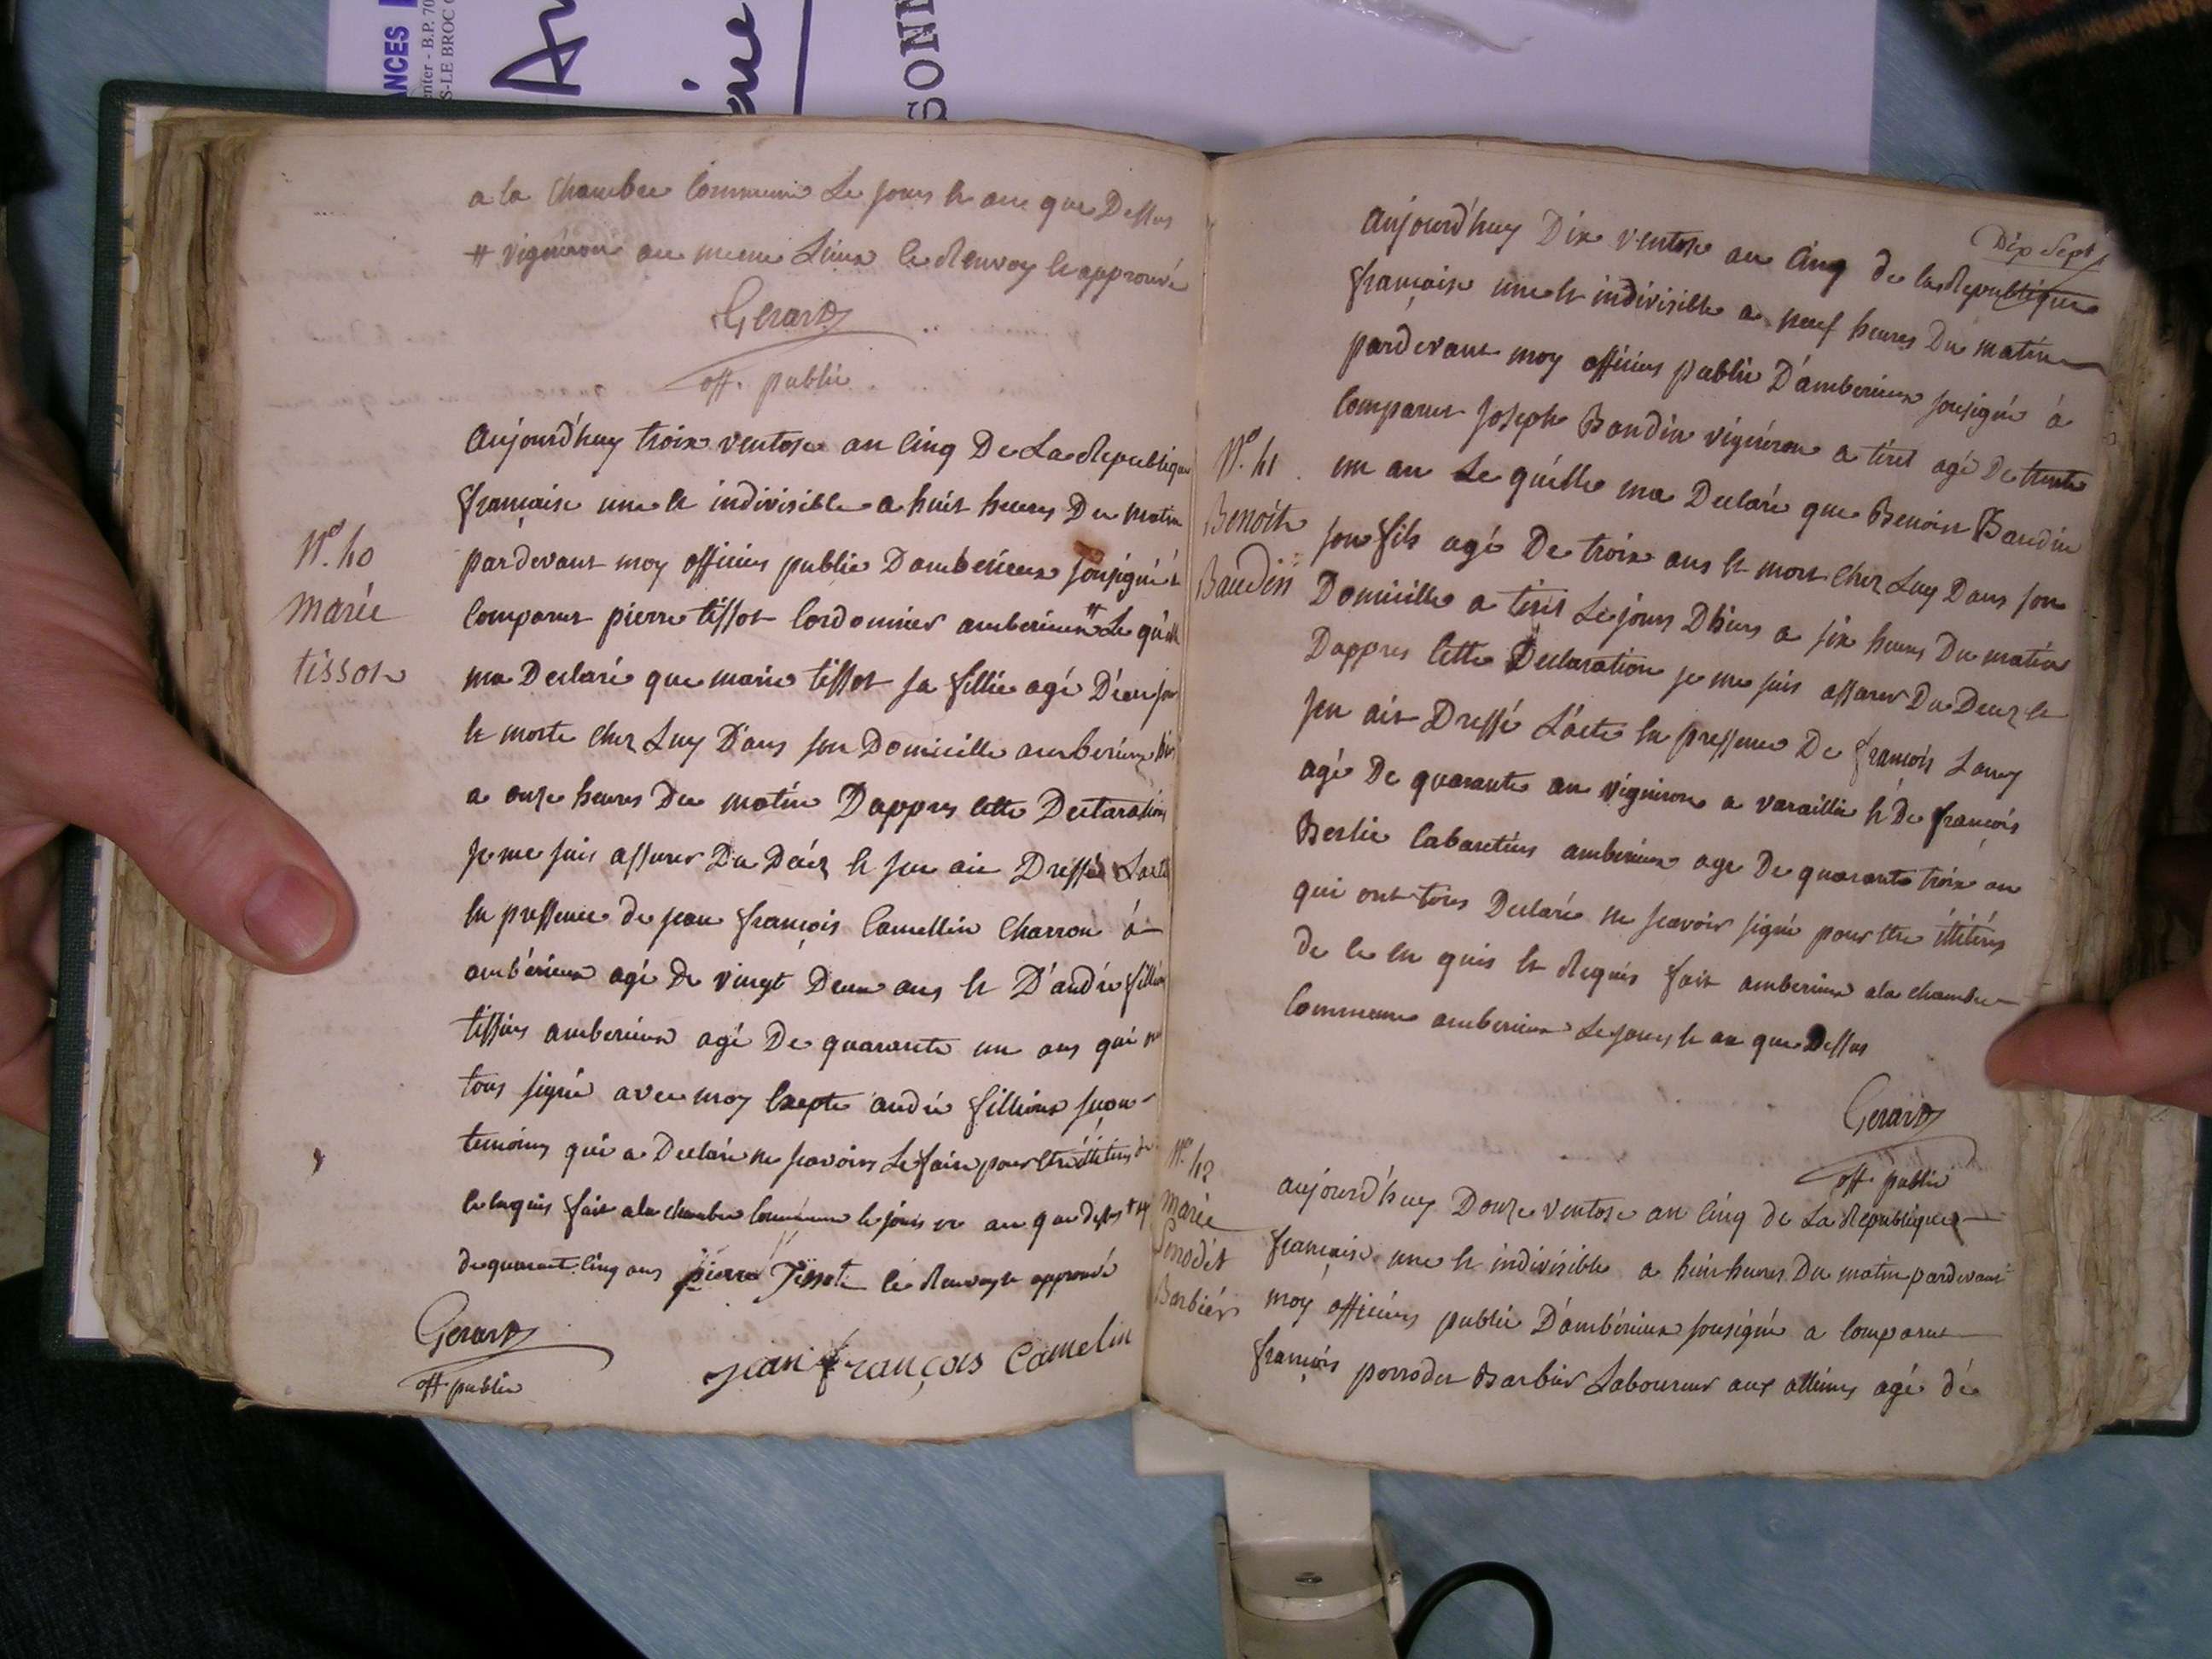 ANCES
enter - B.P. 70
S-LE BROC C
SONN
a la chambre Commune Le jours et an que Dessus
# vigneron au meme Lieux le Renvoy et approuvé
Gerard
off. public
N.º 40
marie
tissot
aujourd'huy troix ventose an cinq De La Republique
française une et indivisible a huit heures Du matin
pardevant moy officier public Damberieux sousigné à
comparut pierre tissot Cordonnier amberieux # Le quelle
ma Declaré que marie tissot sa fillie agé D'un jour
et morte chez Luy Dans son Domicille amberieux hier
a onze heures Du matin Dappres cette Declaration
Je me suis assurer Du Décez et jen ait Dressé Lacte
en pressence de jean françois Camellin Charron à
ambérieux agé de vingt Deux ans et D'andré fillion
tissier amberieux agé De quarante un ans qui ont
tous signé avec moy Exepté andré fillion
temoins qui a Declaré ne scavoir Le faire pour
fait a la chambre Commune le jours et an que dessus
de quarante cinq ans pierre Tissot le Renvoy et approuvé
Gerard
off. public
jean françois Camelin
Dix Sept
N.º 41
Benoit
Baudin
aujourd'huy Dix ventose an cinq de la Republique
française une et indivisible a neuf heures Du matin
pardevant moy officier public D'amberieux sousigné à
comparut Joseph Baudin vigneron a tiret agé De trente
un an Le quelle ma Declaré que Benoit Baudin
son fils agé De troix ans et mort chez Luy Dans son
Domicille a tiret Le jours Dhiers a six heures Du matin
Dappres cette Declaration je me suis assurer Du Decez et
jen ait Dressé L'acte en pressence De françois Louy
agé De quarante an vigneron a varaillie et De françois
Berlie Cabaretiers amberieux age De quarante troix an
qui ont tous Declaré ne scavoir signé pour
de ce en quis et Requis fait amberieux a la chambre
Commune amberieux Le jours et an que Dessus
Gerard
off. public
N.º 42
Marie
Perrodet
Barbier
aujourd'huy Douze ventose an cinq de La Republique
française une et indivisible a huit heures Du matin pardevant
moy officiers public D'ambérieux sousigné a comparut
françois perrodet Barbier Laboureur aux allimes agé de